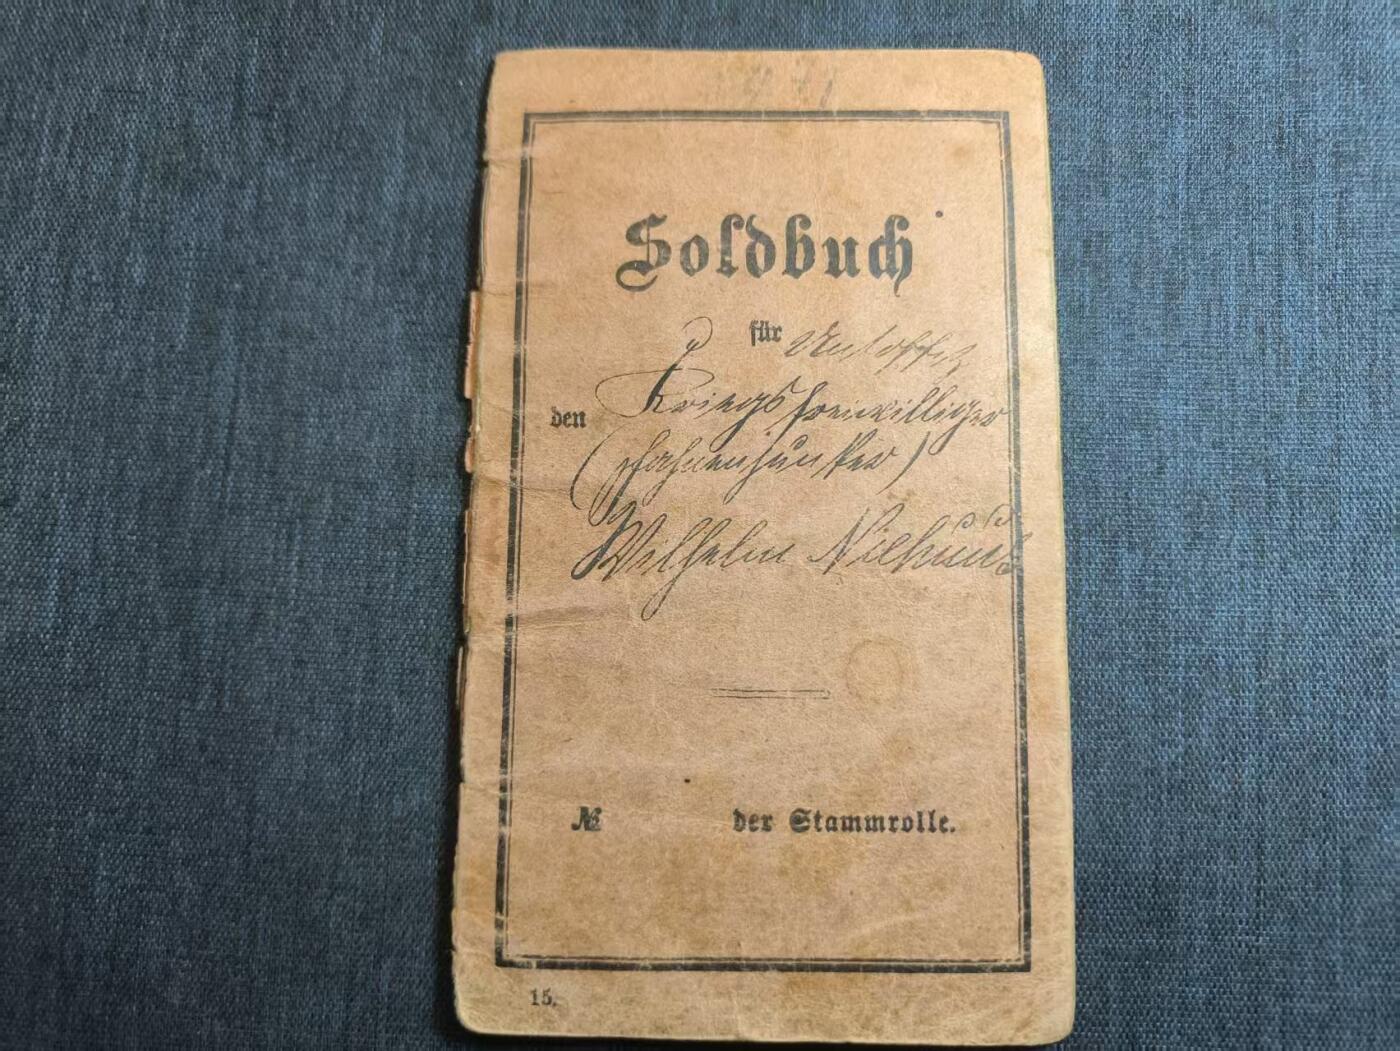 Soldbuch
für Unteroffiz
den Kriegsfreiwilliger
(Fahnenjunker)
Wilhelm
№ der Stammrolle.
15.